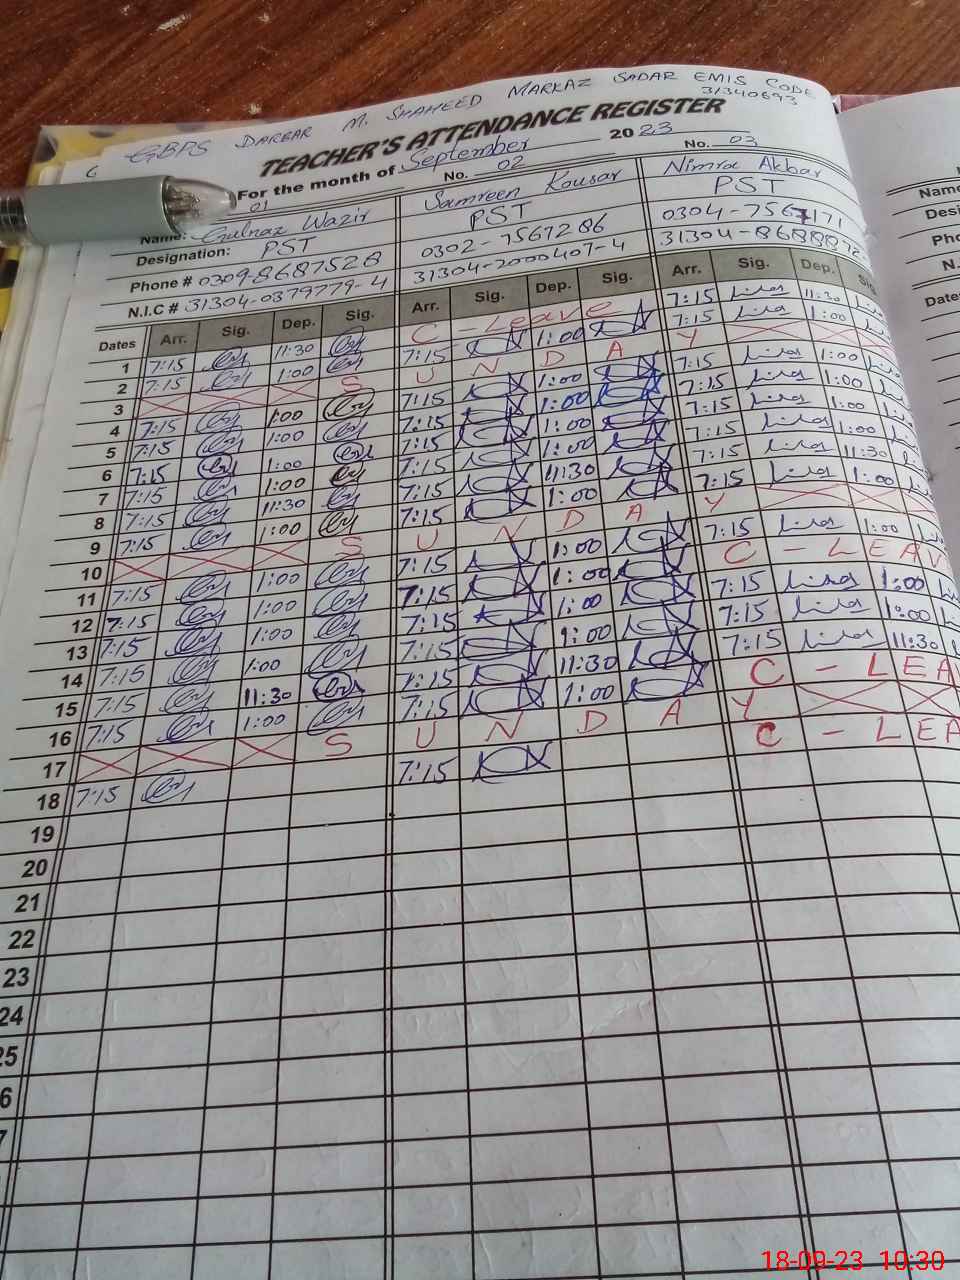 GBPS DARBAR M. SHAHEED MARKAZ SADAR EMIS CODE
31340693
TEACHER'S ATTENDANCE REGISTER
For the month of September 2023
01 No. 02 No. 03
Name: Gulnaz Wazir Samreen Kousar Nimra Akbar
Designation: PST PST PST
Phone # 0309-8687528 0302-7567286 0304-7567171
N.I.C # 31304-0379779-4 31304-2000407-4
Dates Arr. Sig. Dep. Sig. Arr. Sig. Dep. Sig. Arr. Sig. Dep.
1 7:15 11:30 C - Leave 7:15 11:30
2 7:15 1:00 7:15 1:00 7:15 1:00
3 S U N D A Y
4 7:15 1:00 7:15 1:00 7:15 1:00
5 7:15 1:00 7:15 1:00 7:15 1:00
6 7:15 1:00 7:15 1:00 7:15 1:00
7 7:15 1:00 7:15 1:00 7:15 1:00
8 7:15 11:30 7:15 11:30 7:15 11:30
9 7:15 1:00 7:15 1:00 7:15 1:00
10 S U N D A Y
11 7:15 1:00 7:15 1:00 7:15 1:00
12 7:15 1:00 7:15 1:00 C - LEAV
13 7:15 1:00 7:15 1:00 7:15 1:00
14 7:15 1:00 7:15 1:00 7:15 1:00
15 7:15 11:30 7:15 11:30 7:15 11:30
16 7:15 1:00 7:15 1:00 C - LEA
17 S U N D A Y
18 7:15 7:15 C - LEA
19
20
21
22
23
24
25
6
7
Name
Desi
Pho
N.
Date
18-09-23 10:30